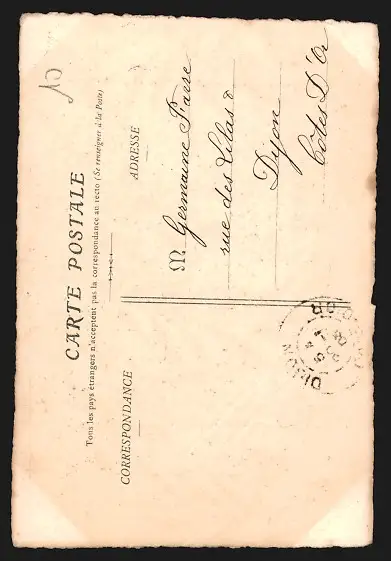 CARTE POSTALE
Tous les pays étrangers n'acceptent pas la correspondance au recto (Se renseigner à la Poste)
CORRESPONDANCE
ADRESSE
M Germaine Faire
rue des Lilas 8
Dijon
Côtes D'Or
DIJON
D'OR